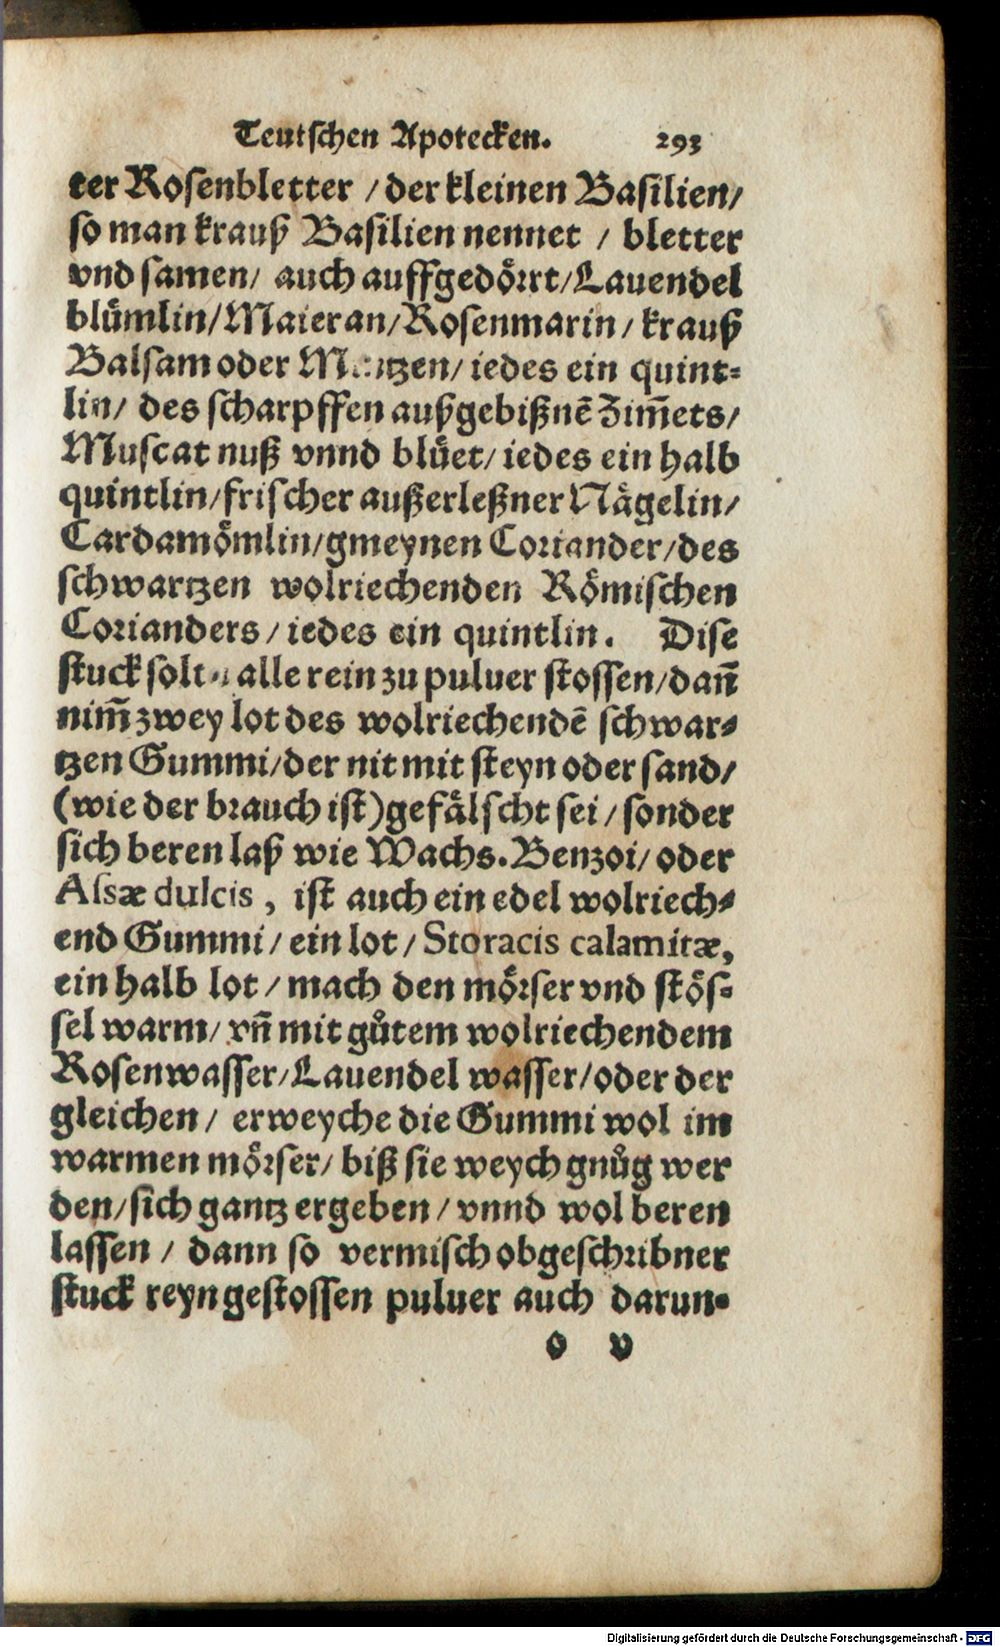 Teutschen Apotecken. 293
ter Rosenbletter / der kleinen Basilien/
so man krauß Basilien nennet / bletter
vnd samen/ auch auffgedoͤrrt/Lauendel
bluͤmlin/Maieran/Rosenmarin/ krauß
Balsam oder / iedes ein quint⸗
lin/ des scharpffen außgebißnẽ Zim̃ets/
Muscat nuß vnnd bluͤet/ iedes ein halb
quintlin/frischer außerleßner Naͤgelin/
Cardamoͤmlin/gmeynen Coriander/des
schwartzen wolriechenden Roͤmischen
Corianders/ iedes ein quintlin. Dise
stuck alle rein zu puluer stossen/dañ
nim̃ zwey lot des wolriechendẽ schwar⸗
tzen Gummi/der nit mit steyn oder sand/
(wie der brauch ist)gefaͤlscht sei / sonder
sich beren laß wie Wachs. Benzoi/ oder
Assæ dulcis, ist auch ein edel wolriech⸗
end Gummi/ ein lot / Storacis calamitæ,
ein halb lot / mach den moͤrser vnd stoͤs⸗
sel warm/ vñ mit guͦtem wolriechendem
Rosenwasser/Lauendel wasser/oder der
gleichen/ erweyche die Gummi wol im
warmen moͤrser/ biß sie weych gnuͦg wer
den/sich gantz ergeben/ vnnd wol beren
lassen / dann so vermisch obgeschribner
stuck reyn gestossen puluer auch darun⸗
o v
Digitalisierung gefördert durch die Deutsche Forschungsgemeinschaft - DFG